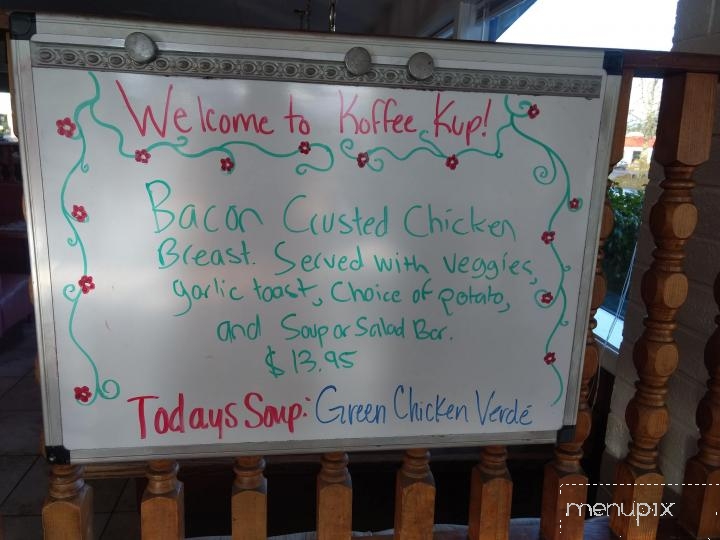 Welcome to Koffee Kup!
Bacon Crusted Chicken
Breast. Served with veggies,
garlic toast, Choice of potato,
and Soup or Salad Bar.
$13.95
Todays Soup: Green Chicken Verdé
menupix